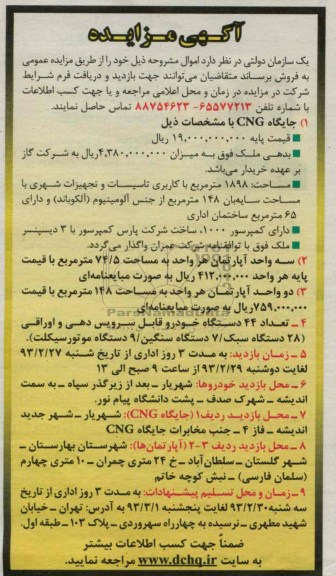 آگهی مزایده
یک سازمان دولتی در نظر دارد اموال مشروحه ذیل خود را از طریق مزایده عمومی
به فروش برساند متقاضیان می‌توانند جهت بازدید و دریافت فرم شرایط
شرکت در مزایده در زمان و محل اعلامی مراجعه و یا جهت کسب اطلاعات
با شماره تلفن ۶۵۵۷۷۲۱۳- ۸۸۷۵۴۶۲۳ تماس حاصل نمایند.
۱) جایگاه CNG با مشخصات ذیل
■ قیمت پایه ۱۹,۰۰۰,۰۰۰,۰۰۰ ریال
■ بدهی ملک فوق به میزان ۴,۳۸۰,۰۰۰,۰۰۰ریال به شرکت گاز
بر عهده خریدار می‌باشد.
■ مساحت: ۱۸۹۸ مترمربع با کاربری تاسیسات و تجهیزات شهری با
مساحت سایه‌بان ۱۴۸ مترمربع از جنس آلومینیوم (آلکوباند) و دارای
۶۵ مترمربع ساختمان اداری
■ دارای کمپرسور ۱۰۰۰، ساخت شرکت پارس کمپرسور با ۳ دیسپنسر
■ ملک فوق با توافقنامه شرکت عمران واگذار می‌گردد.
۲) سه واحد آپارتمان هر واحد به مساحت ۷۴/۵ مترمربع با قیمت
پایه هر واحد ۴۱۲,۰۰۰,۰۰۰ ریال به صورت مبایعنامه‌ای
۳) دو واحد آپارتمان هر واحد به مساحت ۱۴۸ مترمربع با قیمت
۷۵۹,۰۰۰,۰۰۰ریال به صورت مبایعنامه‌ای
۴ – تعداد ۴۴ دستگاه خودرو قابل سرویس دهی و اوراقی
(۲۸ دستگاه سبک/ ۷ دستگاه سنگین/ ۹ دستگاه موتورسیکلت).
۵ – زمان بازدید: به مدت ۳ روز اداری از تاریخ شنبه ۹۳/۲/۲۷
لغایت دوشنبه ۹۳/۲/۲۹ از ساعت ۹ صبح الی ۱۳
۶ – محل بازدید خودروها: شهریار – بعد از زیرگذر سپاه – به سمت
اندیشه – شهرک صدف – پشت دانشگاه پیام نور.
۷ – محل بازدید ردیف۱ (جایگاه CNG): شهریار – شهر جدید
اندیشه – فاز ۴ – جنب مخابرات جایگاه CNG
۸ – محل بازدید ردیف ۳-۲ (آپارتمان‌ها): شهرستان بهارستان –
شهر گلستان – سلطان‌آباد – خ ۲۴ متری چمران – ۱۰ متری چهارم
(سلمان فارسی) – نبش کوچه خاتم
۹ – زمان و محل تسلیم پیشنهادات: به مدت ۳ روز اداری از تاریخ
سه شنبه ۹۳/۲/۳۰ لغایت پنجشنبه ۹۳/۳/۱ به آدرس: تهران – خیابان
شهید مطهری – نرسیده به چهارراه سهروردی – پلاک ۱۰۳ – طبقه اول.
ضمناً جهت کسب اطلاعات بیشتر
به سایت www.dchq.ir مراجعه نمایید.